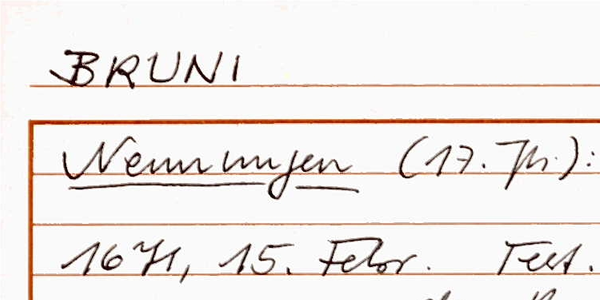 BRUNI
Nennungen (17. Jh.):
1671, 15. Febr. Test.